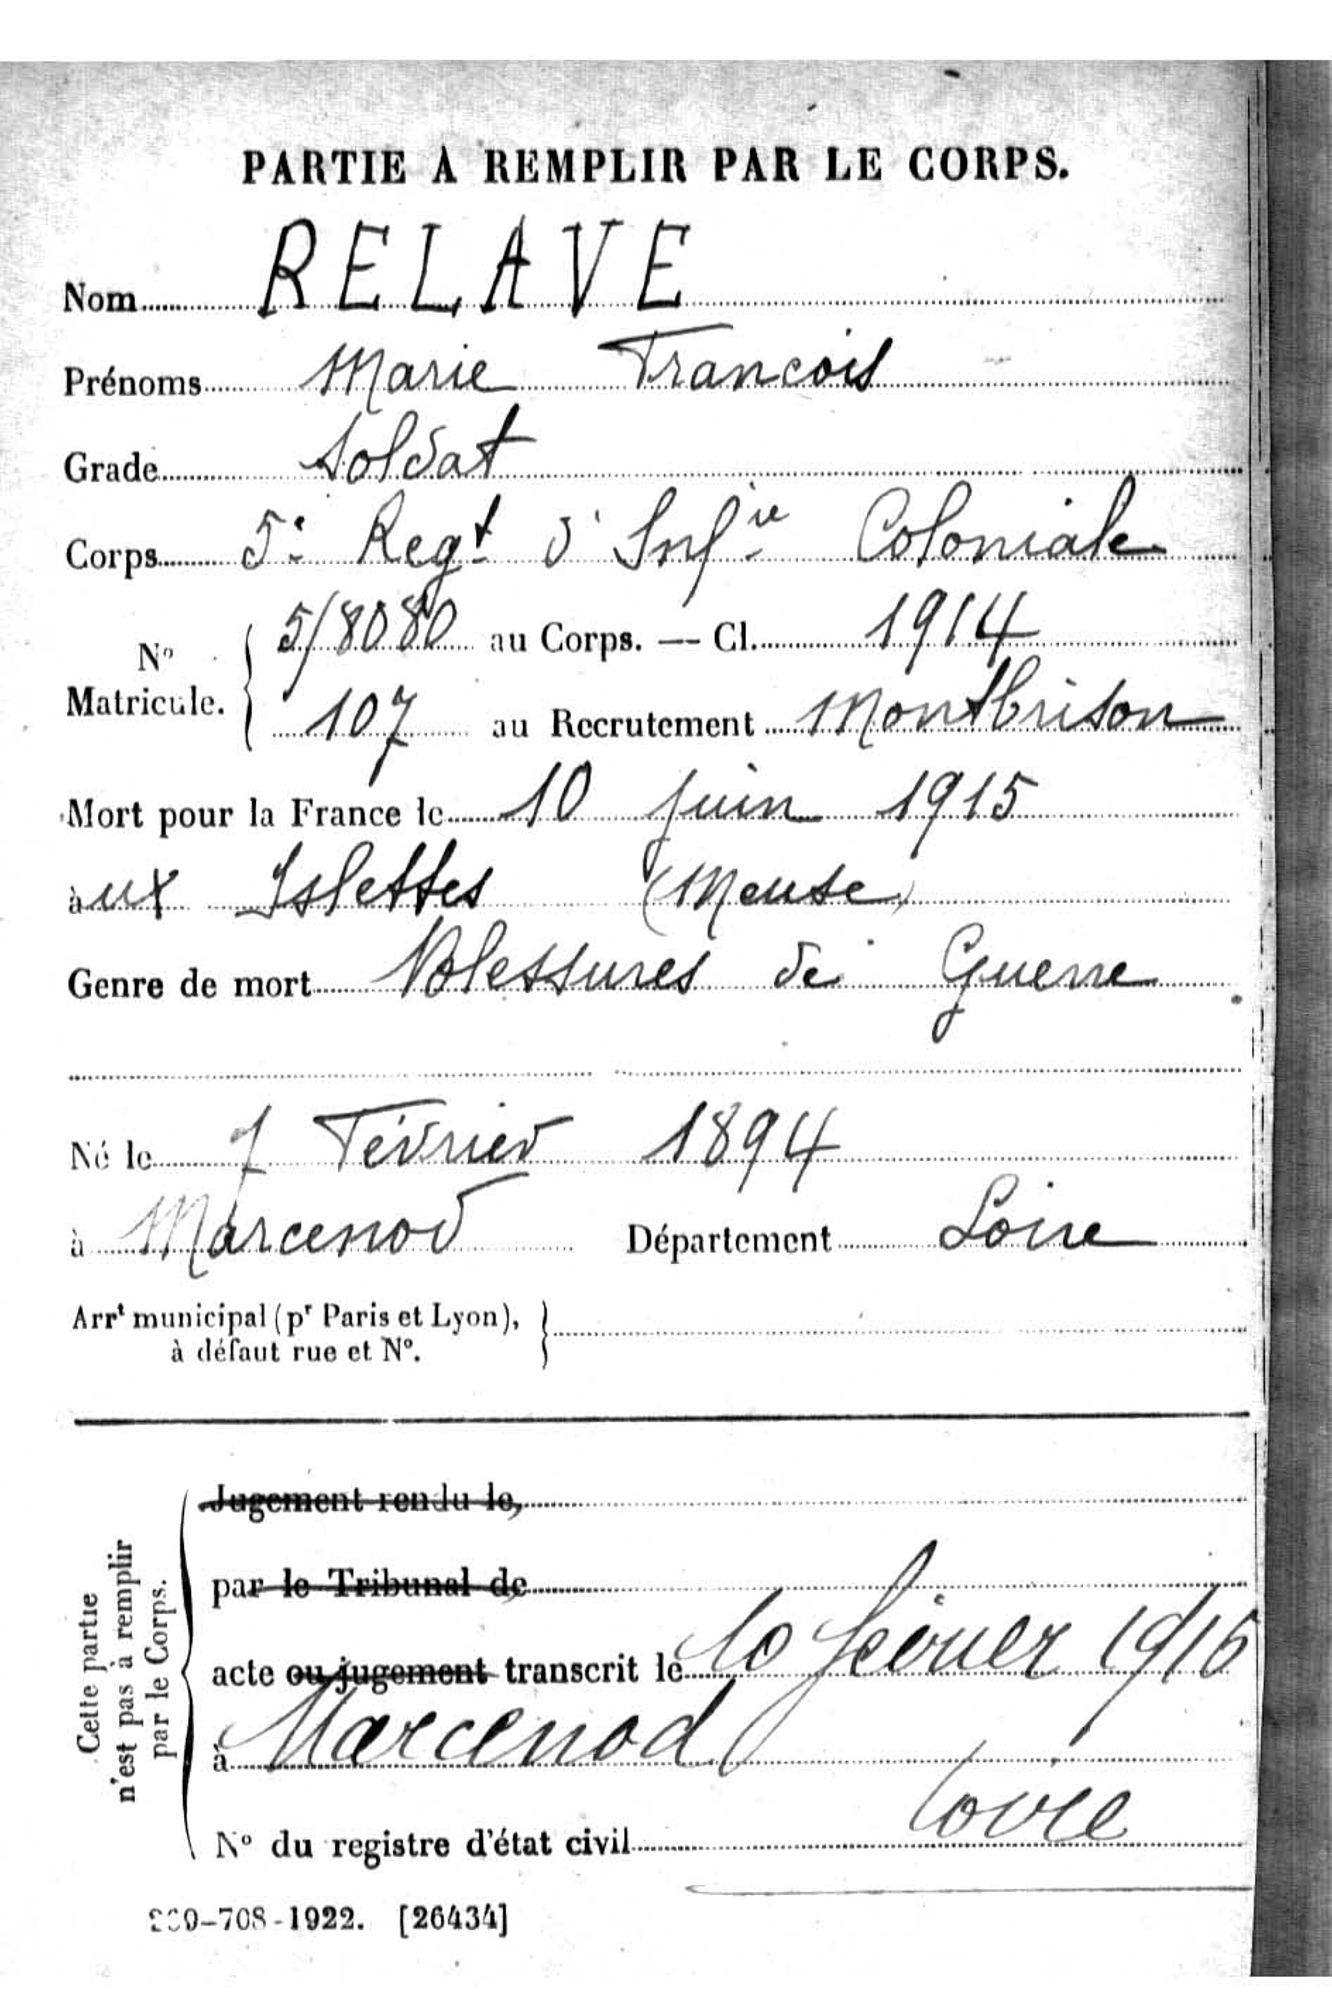 PARTIE À REMPLIR PAR LE CORPS.
Nom RELAVE
Prénoms Marie Francois
Grade Soldat
Corps 5e Regt d'Infie Coloniale
N° Matricule. 5/8080 au Corps. — Cl. 1914
107 au Recrutement Montbrison
Mort pour la France le 10 juin 1915
à ux Islettes (Meuse)
Genre de mort Blessures de Guerre
Né le 7 Février 1894
à Marcenod Département Loire
Arrt municipal (pr Paris et Lyon),
à défaut rue et N°.
Cette partie
n'est pas à remplir
par le Corps.
Jugement rendu le,
par le Tribunal de
acte ou jugement transcrit le 10 février 1916
à Marcenod
Loire
N° du registre d'état civil
-708-1922. [26434]